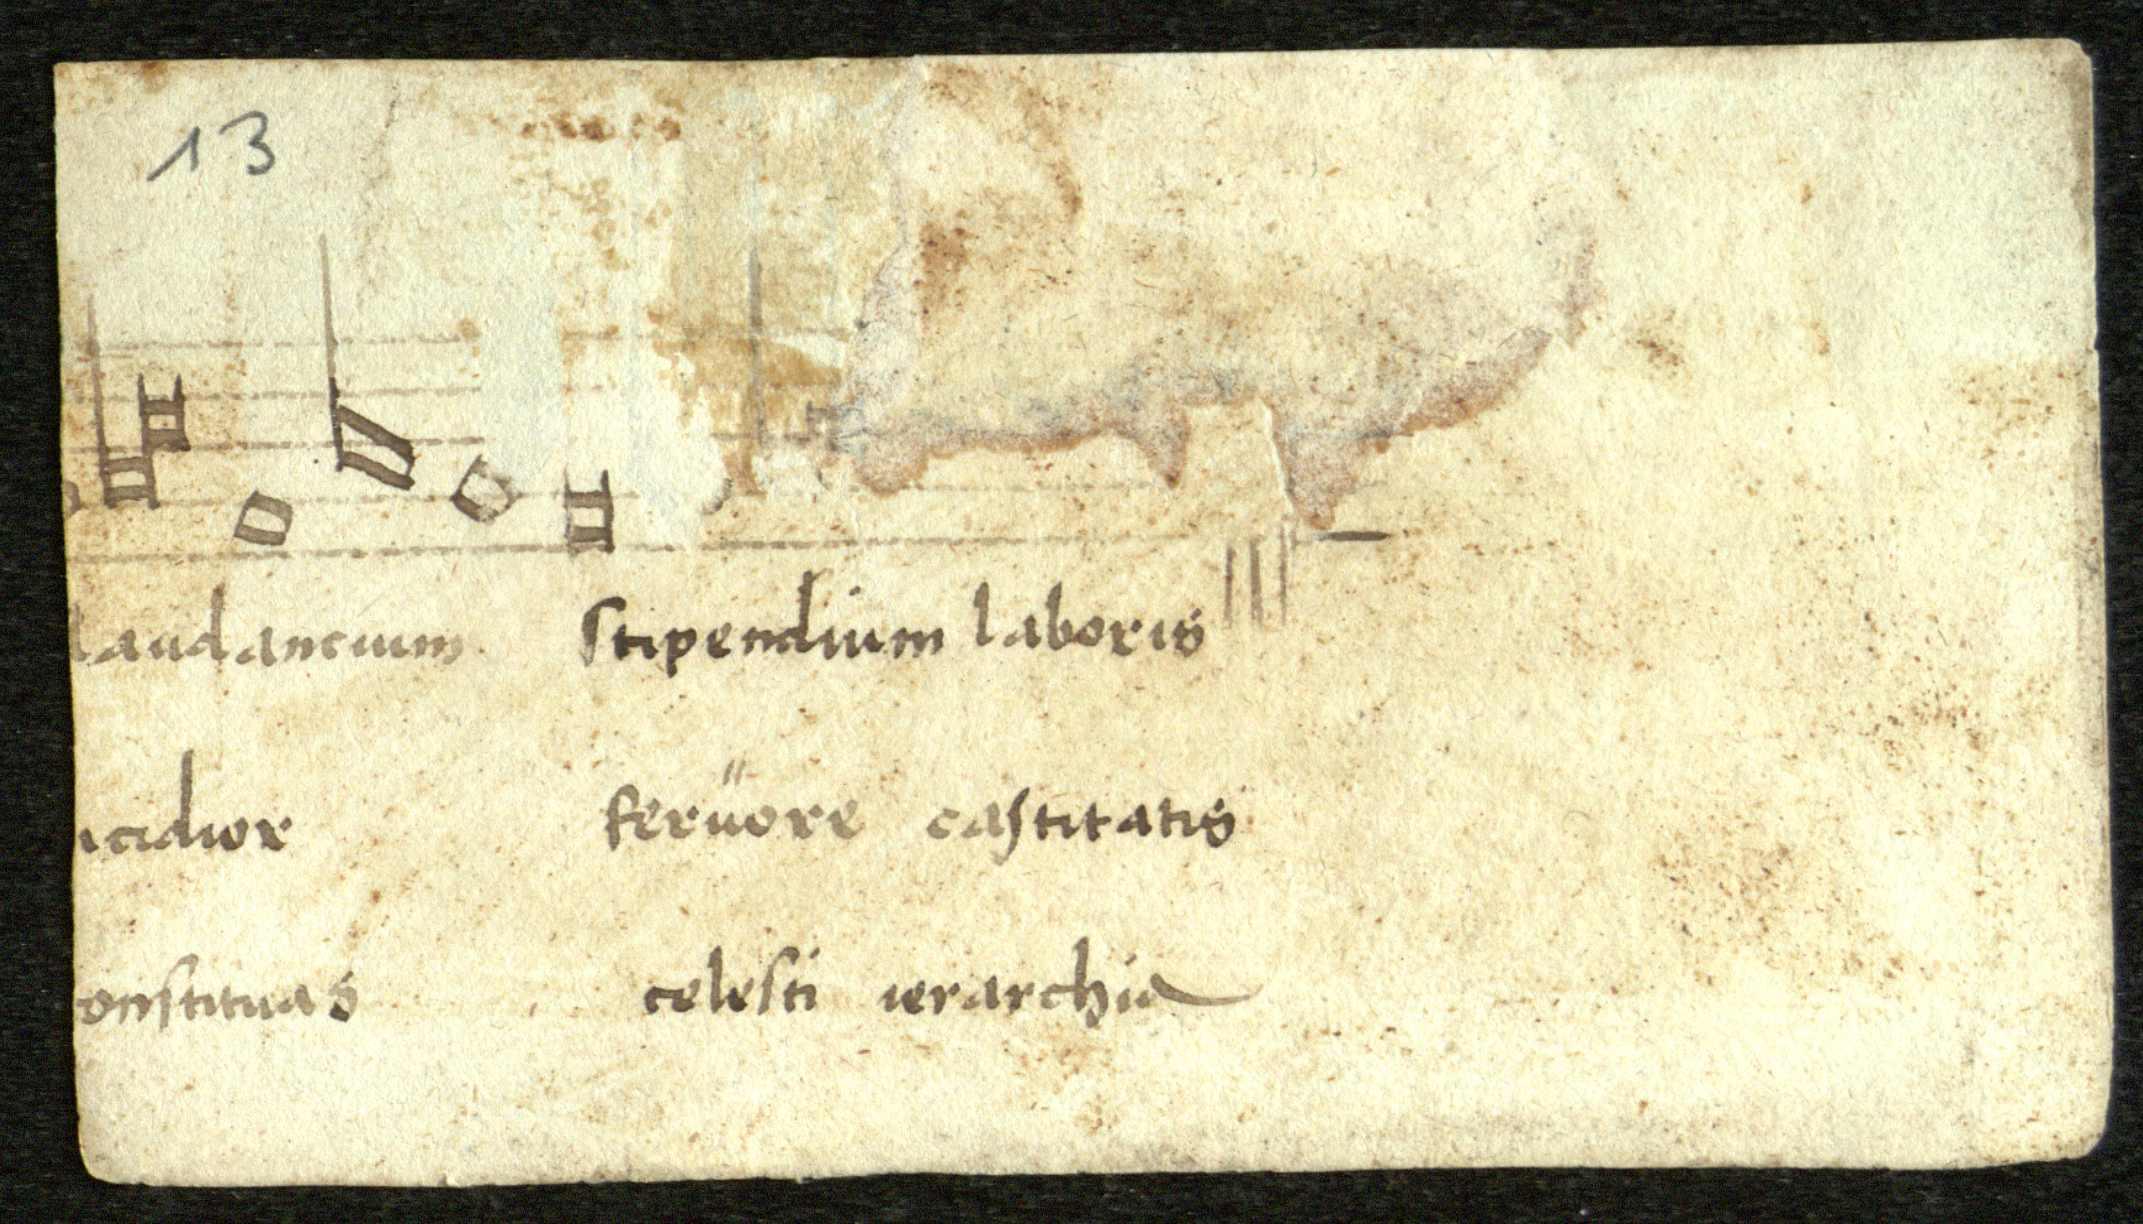 13
laudancium stipendium laboris
icidior feruore castitatis
onstituas celesti ierarchia